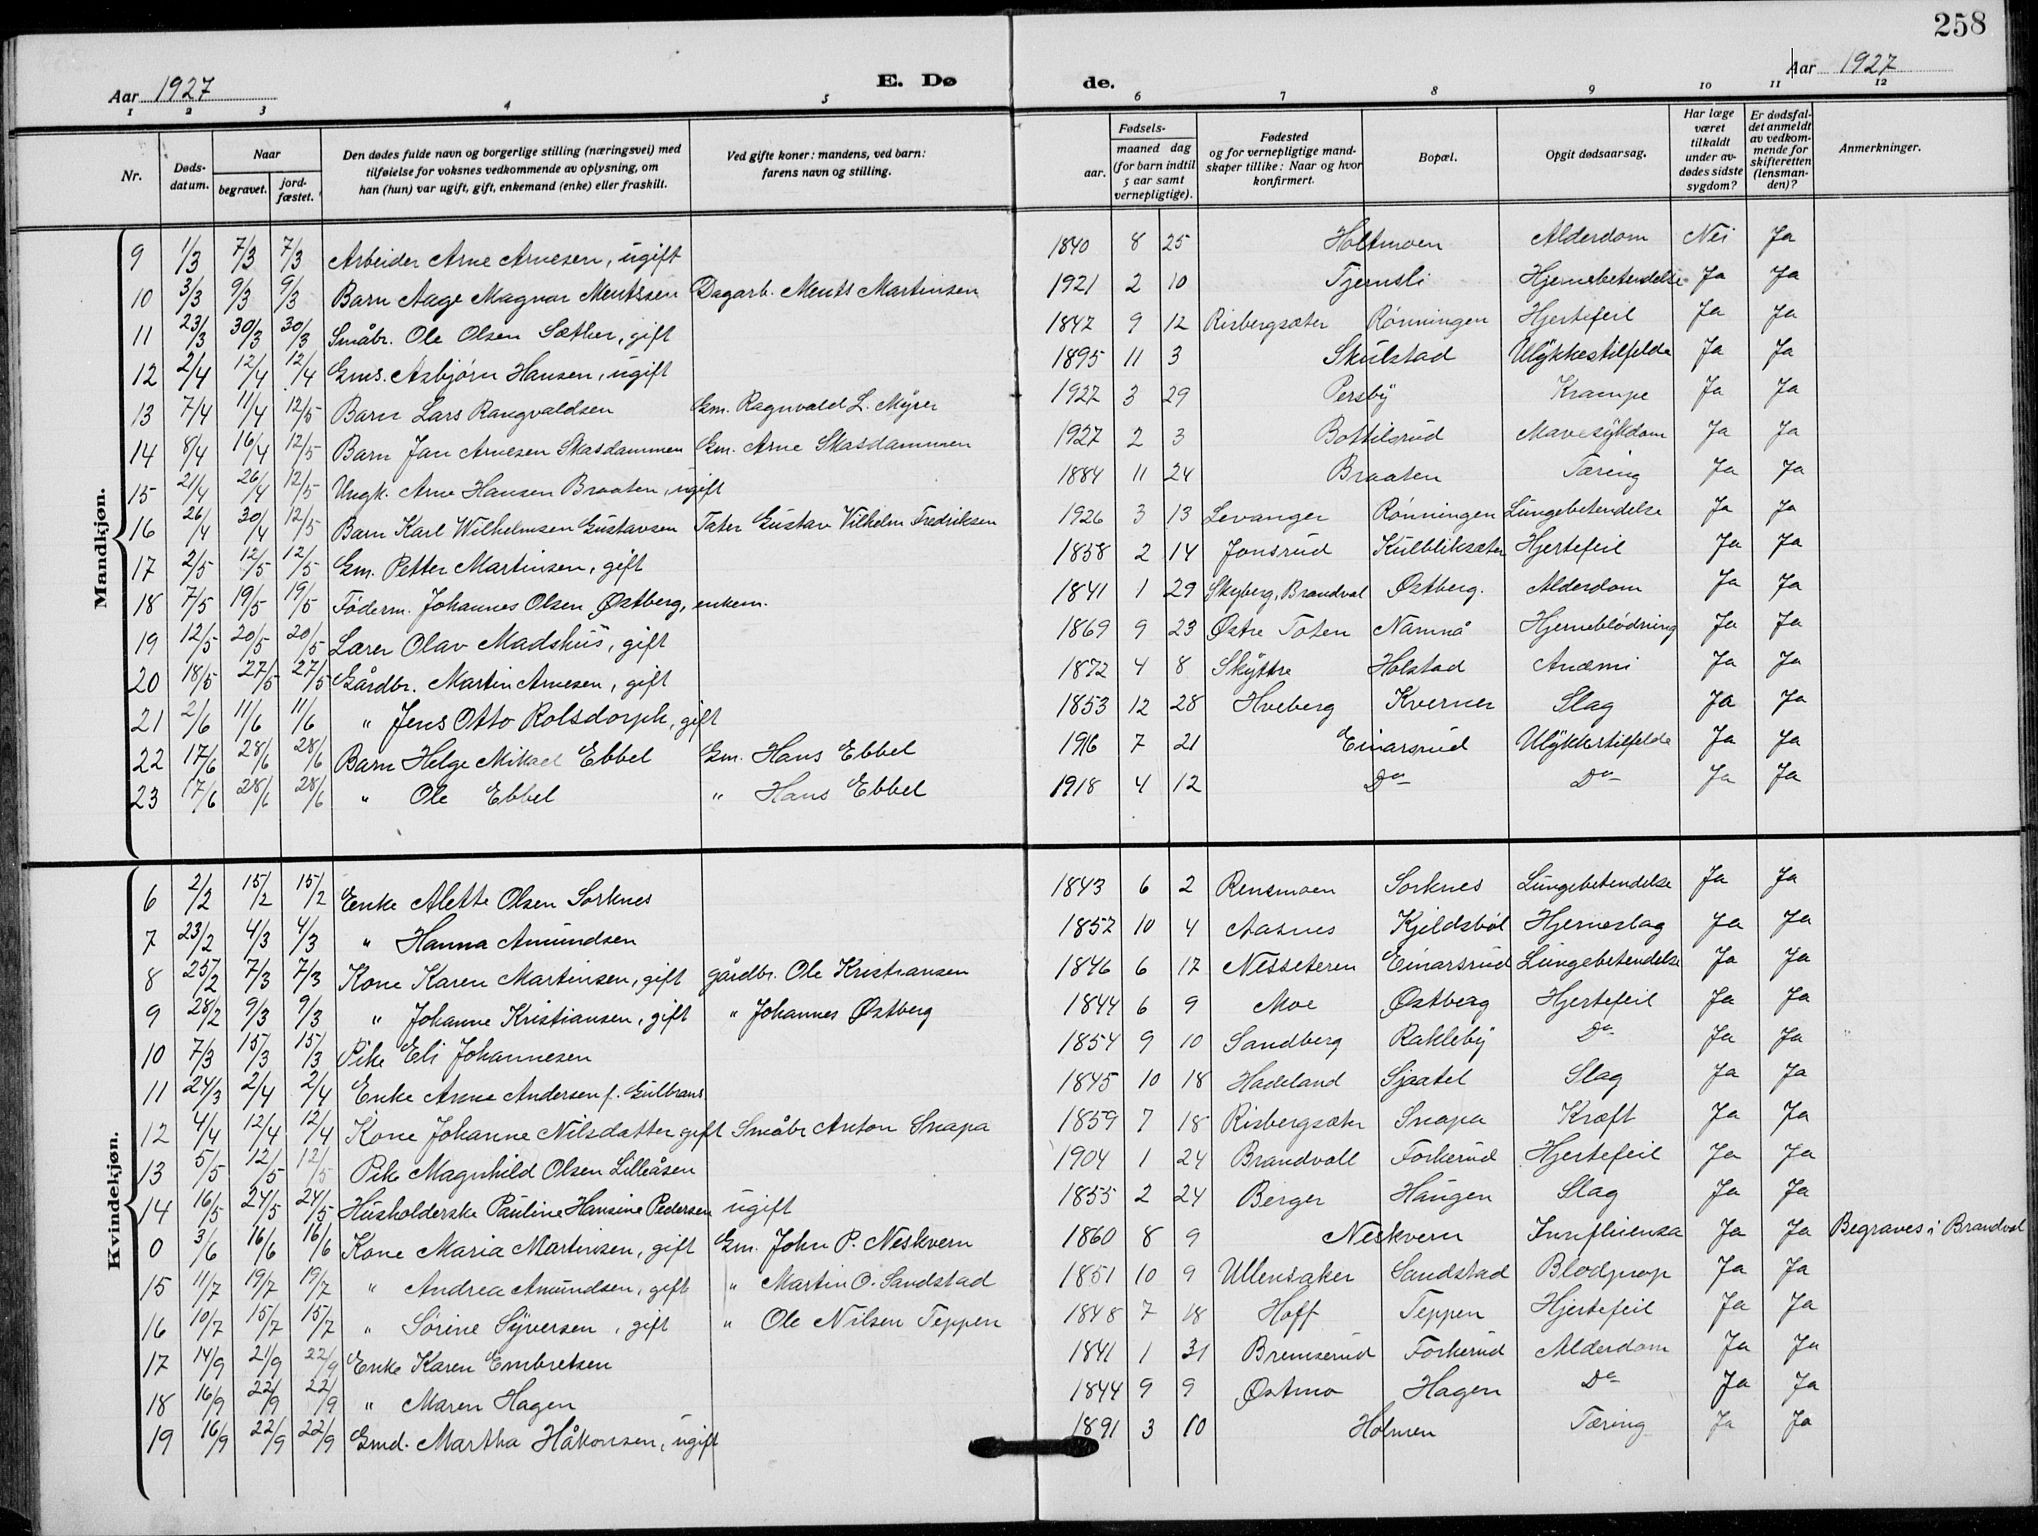 258
Aar 1927 E. Døde. Aar 1927
1 2 3 4 5 6 7 8 9 10 11 12
Nr. Døds-datum. Naar begravet. jord-fæstet. Den dødes fulde navn og borgerlige stilling (næringsvei) med tilføielse for voksnes vedkommende av oplysning, om han (hun) var ugift, gift, enkemand (enke) eller fraskilt. Ved gifte koner: mandens, ved barn: farens navn og stilling. Fødsels- aar. maaned dag (for barn indtil 5 aar samt vernepligtige). Fødested og for vernepligtige mand-skaper tillike: Naar og hvor konfirmert. Bopæl. Opgit dødsaarsag. Har læge været tilkaldt under av-dødes sidste sygdom? Er dødsfal-det anmeldt av vedkom-mende for skifteretten (lensman-den)? Anmerkninger.
Mandkjøn.
9 1/3 7/3 7/3 Arbeider Arne Arnesen, ugift 1840 8 25 Holtmoen Alderdom Nei Ja
10 3/3 9/3 9/3 Barn Aage Magnar Mentssen Dagarb. Ments Martinsen 1921 2 10 Tjernsli Hjernebetendelse Ja Ja
11 23/3 30/3 30/3 Småbr. Ole Olsen Sæther, gift 1847 9 12 Risbergsæter Rønningen Hjertefeil Ja Ja
12 2/4 12/4 12/4 Gms. Asbjørn Hansen, ugift 1895 11 3 Skulstad Ulykkestilfelde Ja Ja
13 7/4 11/4 12/5 Barn Lars Rangvaldsen Gm. Ragnvald L. Myrer 1927 3 29 Persby Krampe Ja Ja
14 8/4 16/4 12/5 Barn Jan Arnesen Skasdammen Gm. Arne Skasdammen 1927 2 3 Bottilsrud Mavesykdom Ja Ja
15 21/4 26/4 12/5 Ungk. Arne Hansen Braaten, ugift 1884 11 24 Braaten Tæring Ja Ja
16 26/4 30/4 12/5 Barn Karl Wilhelmsen Gustavsen Tater Gustav Vilhelm Fredriksen 1926 3 13 Levanger Rønningen Lungebetendelse Ja Ja
17 2/5 12/5 12/5 Gm. Petter Martinsen, gift 1858 2 14 Jonsrud Kulbliksæter Hjertefeil Ja Ja
18 7/5 19/5 19/5 Føderm. Johannes Olsen Østberg, enkem. 1841 1 29 Skyberg, Brandval Østberg. Alderdom Ja Ja
19 12/5 20/5 20/5 Lærer Olav Madshus, gift 1869 9 23 Østre Toten Namnå Hjerneblødning Ja Ja
20 18/5 27/5 27/5 Gårdbr. Martin Arnesen, gift 1872 4 8 Skyttre Holstad Anæmi Ja Ja
21 2/6 11/6 11/6 " Jens Otto Rolsdorph, gift 1853 12 28 Hveberg Kverner Slag Ja Ja
22 17/6 28/6 28/6 Barn Helge Mikael Ebbel Gm. Hans Ebbel 1916 7 21 Einarsrud Ulykkestilfelde Ja Ja
23 17/6 28/6 28/6 " Ole Ebbel " Hans Ebbel 1918 4 12 Do Do Ja Ja
Kvindekjøn.
6 2/2 15/2 15/2 Enke Alette Olsen Sorknes 1843 6 2 Rensmoen Sorknes Lungebetendelse Ja Ja
7 23/2 4/3 4/3 " Hanna Amundsen 1852 10 4 Aasnes Kjeldsbøl Hjerneslag Ja Ja
8 25/2 7/3 7/3 Kone Karen Martinsen, gift gårdbr. Ole Kristiansen 1846 6 17 Nesseteren Einarsrud Lungebetendelse Ja Ja
9 28/2 9/3 9/3 " Johanne Kristiansen, gift " Johannes Østberg 1844 6 9 Moe Østberg Hjertefeil Ja Ja
10 7/3 15/3 15/3 Pike Eli Johannesen 1854 9 10 Sandberg Rakleby Do Ja Ja
11 24/3 2/4 2/4 Enke Anne Andersen f. Gulbrans 1845 10 18 Hadeland Sjaatel Slag Ja Ja
12 4/4 12/4 12/4 Kone Johanne Nilsdatter gift Småbr Anton Snapa 1859 7 18 Risbergsæter Snapa Kræft Ja Ja
13 5/5 12/5 12/5 Pike Magnhild Olsen Lilleåsen 1904 1 24 Brandvall Forkerud Hjertefeil Ja Ja
14 16/5 24/5 24/5 Husholderske Pauline Hansine Pedersen ugift 1855 2 24 Berger Haugen Slag Ja Ja
0 3/6 16/6 16/6 Kone Maria Martinsen, gift Gm. John P. Neskvern 1860 8 9 Neskvern Innfluensa Ja Ja Begraves i Brandval
15 11/7 19/7 19/7 " Andrea Amundsen, gift " Martin O. Sandstad 1851 10 9 Ullensaker Sandstad Blodprop Ja Ja
16 10/7 15/7 15/7 " Sørine Syversen, gift " Ole Nilsen Teppen 1848 7 18 Hoff Teppen Hjertefeil Ja Ja
17 14/9 21/9 22/9 Enke Karen Embretsen 1841 1 31 Bremserud Forkerud Alderdom Ja Ja
18 16/9 22/9 22/9 " Maren Hagen 1844 9 9 Østmo Hagen Do Ja Ja
19 16/9 22/9 22/9 Gmd. Martha Håkonsen, ugift 1891 3 10 Holmen Tæring Ja Ja